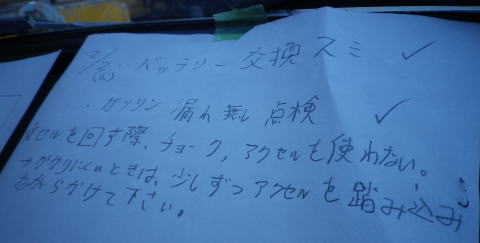 2/ バッテリー 交換 スミ ✓
・ガソリン 漏れ無し 点検 ✓
セルを回す際、チョーク,アクセルを使わない。
かかりにくいときは、少しずつアクセルを踏み込み
ながらかけて下さい。